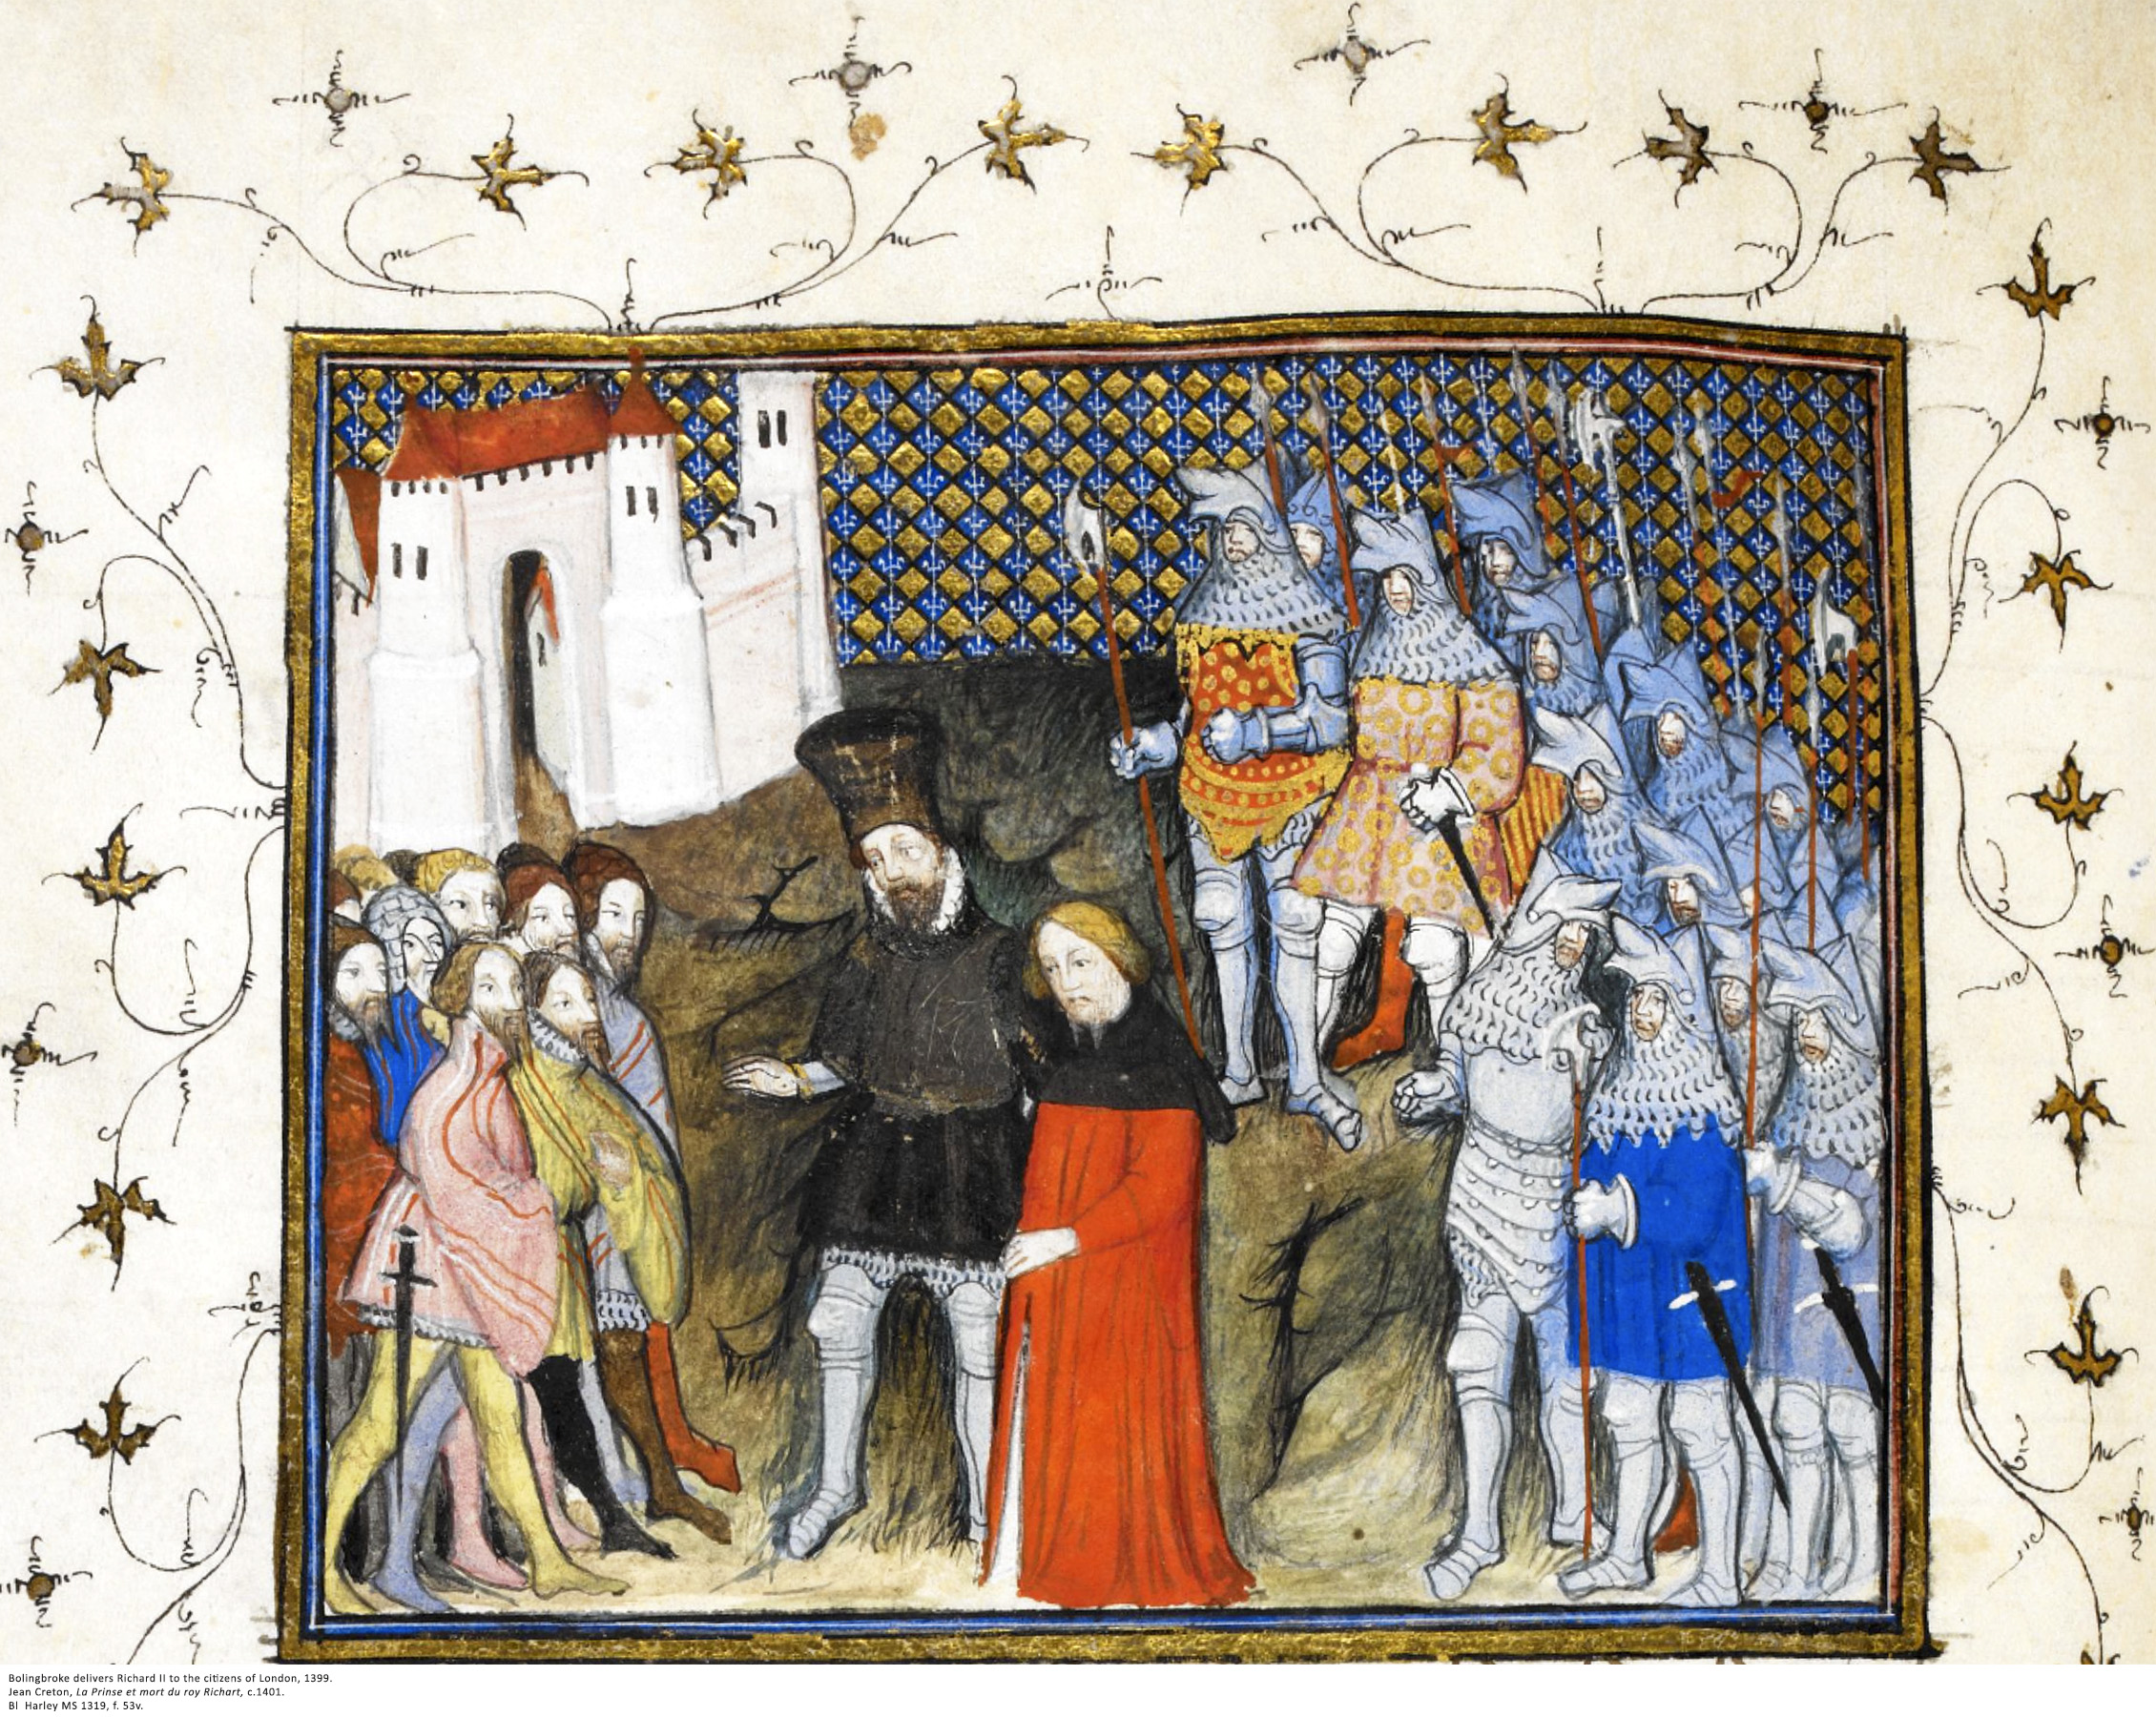 Bolingbroke delivers Richard II to the citizens of London, 1399.
Jean Creton, La Prinse et mort du roy Richart, c.1401.
Bl  Harley MS 1319, f. 53v.